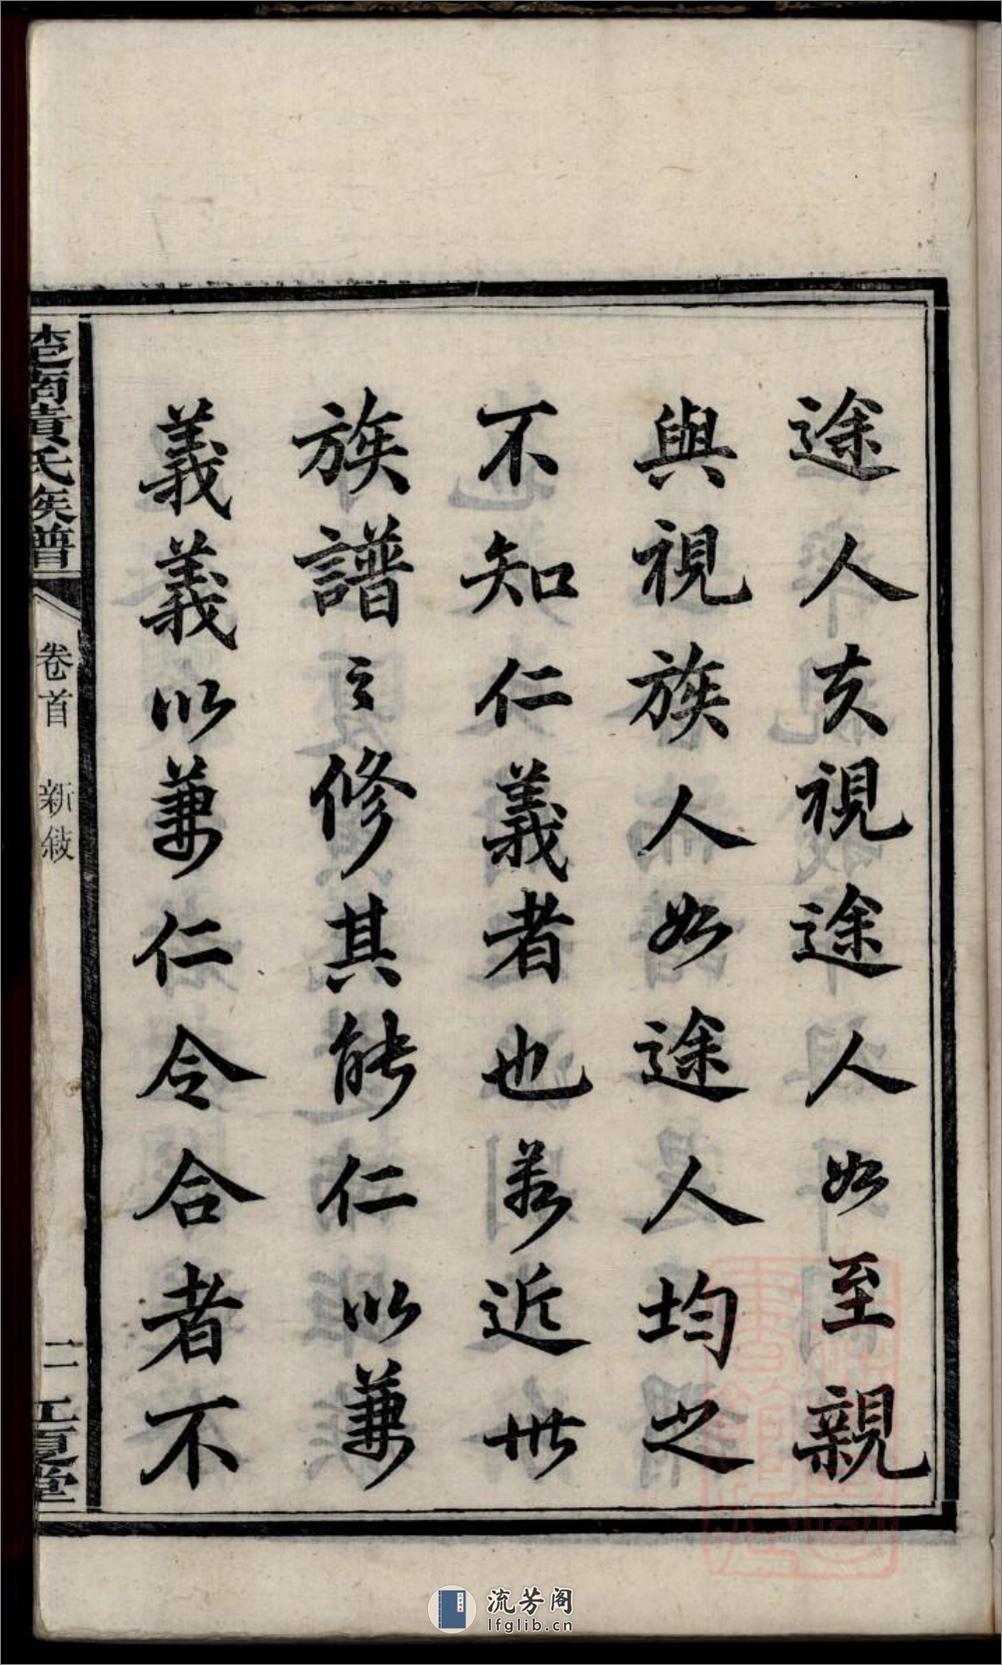 途人夫視途人如至親
與視族人如途人均之
不知仁義者也若近世
族譜之修其能仁以兼
義義以兼仁令合者不
楚南黄氏族譜
卷首 新敍
二 江夏堂
流芳阁
lfglib.cn